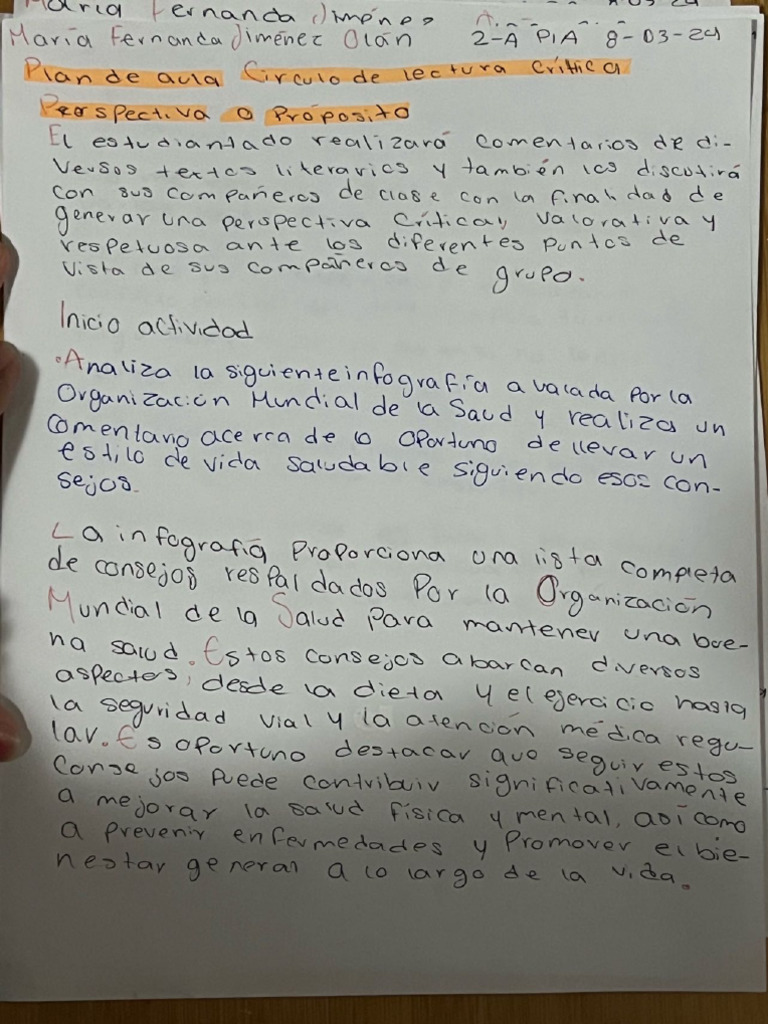 María Fernanda Jiménez
María Fernanda Jiménez Olán 2-A PIA 8-03-24
Plan de aula Circulo de lectura crítica
Perspectiva o Próposito
El estudiantado realizará comentarios de di-
versos textos literarios y también los discutirá
con sus compañeros de clase con la finalidad de
generar una perspectiva crítica, valorativa y
respetuosa ante los diferentes puntos de
vista de sus compañeros de grupo.
Inicio actividad
•Analiza la siguiente infografía avalada por la
Organización Mundial de la Saud y realiza un
comentario acerca de lo oportuno de llevar un
estilo de vida saludable siguiendo esos con-
sejos.
La infografía proporciona una lista completa
de consejos respaldados por la Organización
Mundial de la Salud para mantener una bue-
na salud. Estos consejos abarcan diversos
aspectos, desde la dieta y el ejercicio hasta
la seguridad vial y la atención médica regu-
lar. Es oportuno destacar que seguir estos
consejos puede contribuir significativamente
a mejorar la salud física y mental, así como
a prevenir enfermedades y promover el bie-
nestar general a lo largo de la vida.